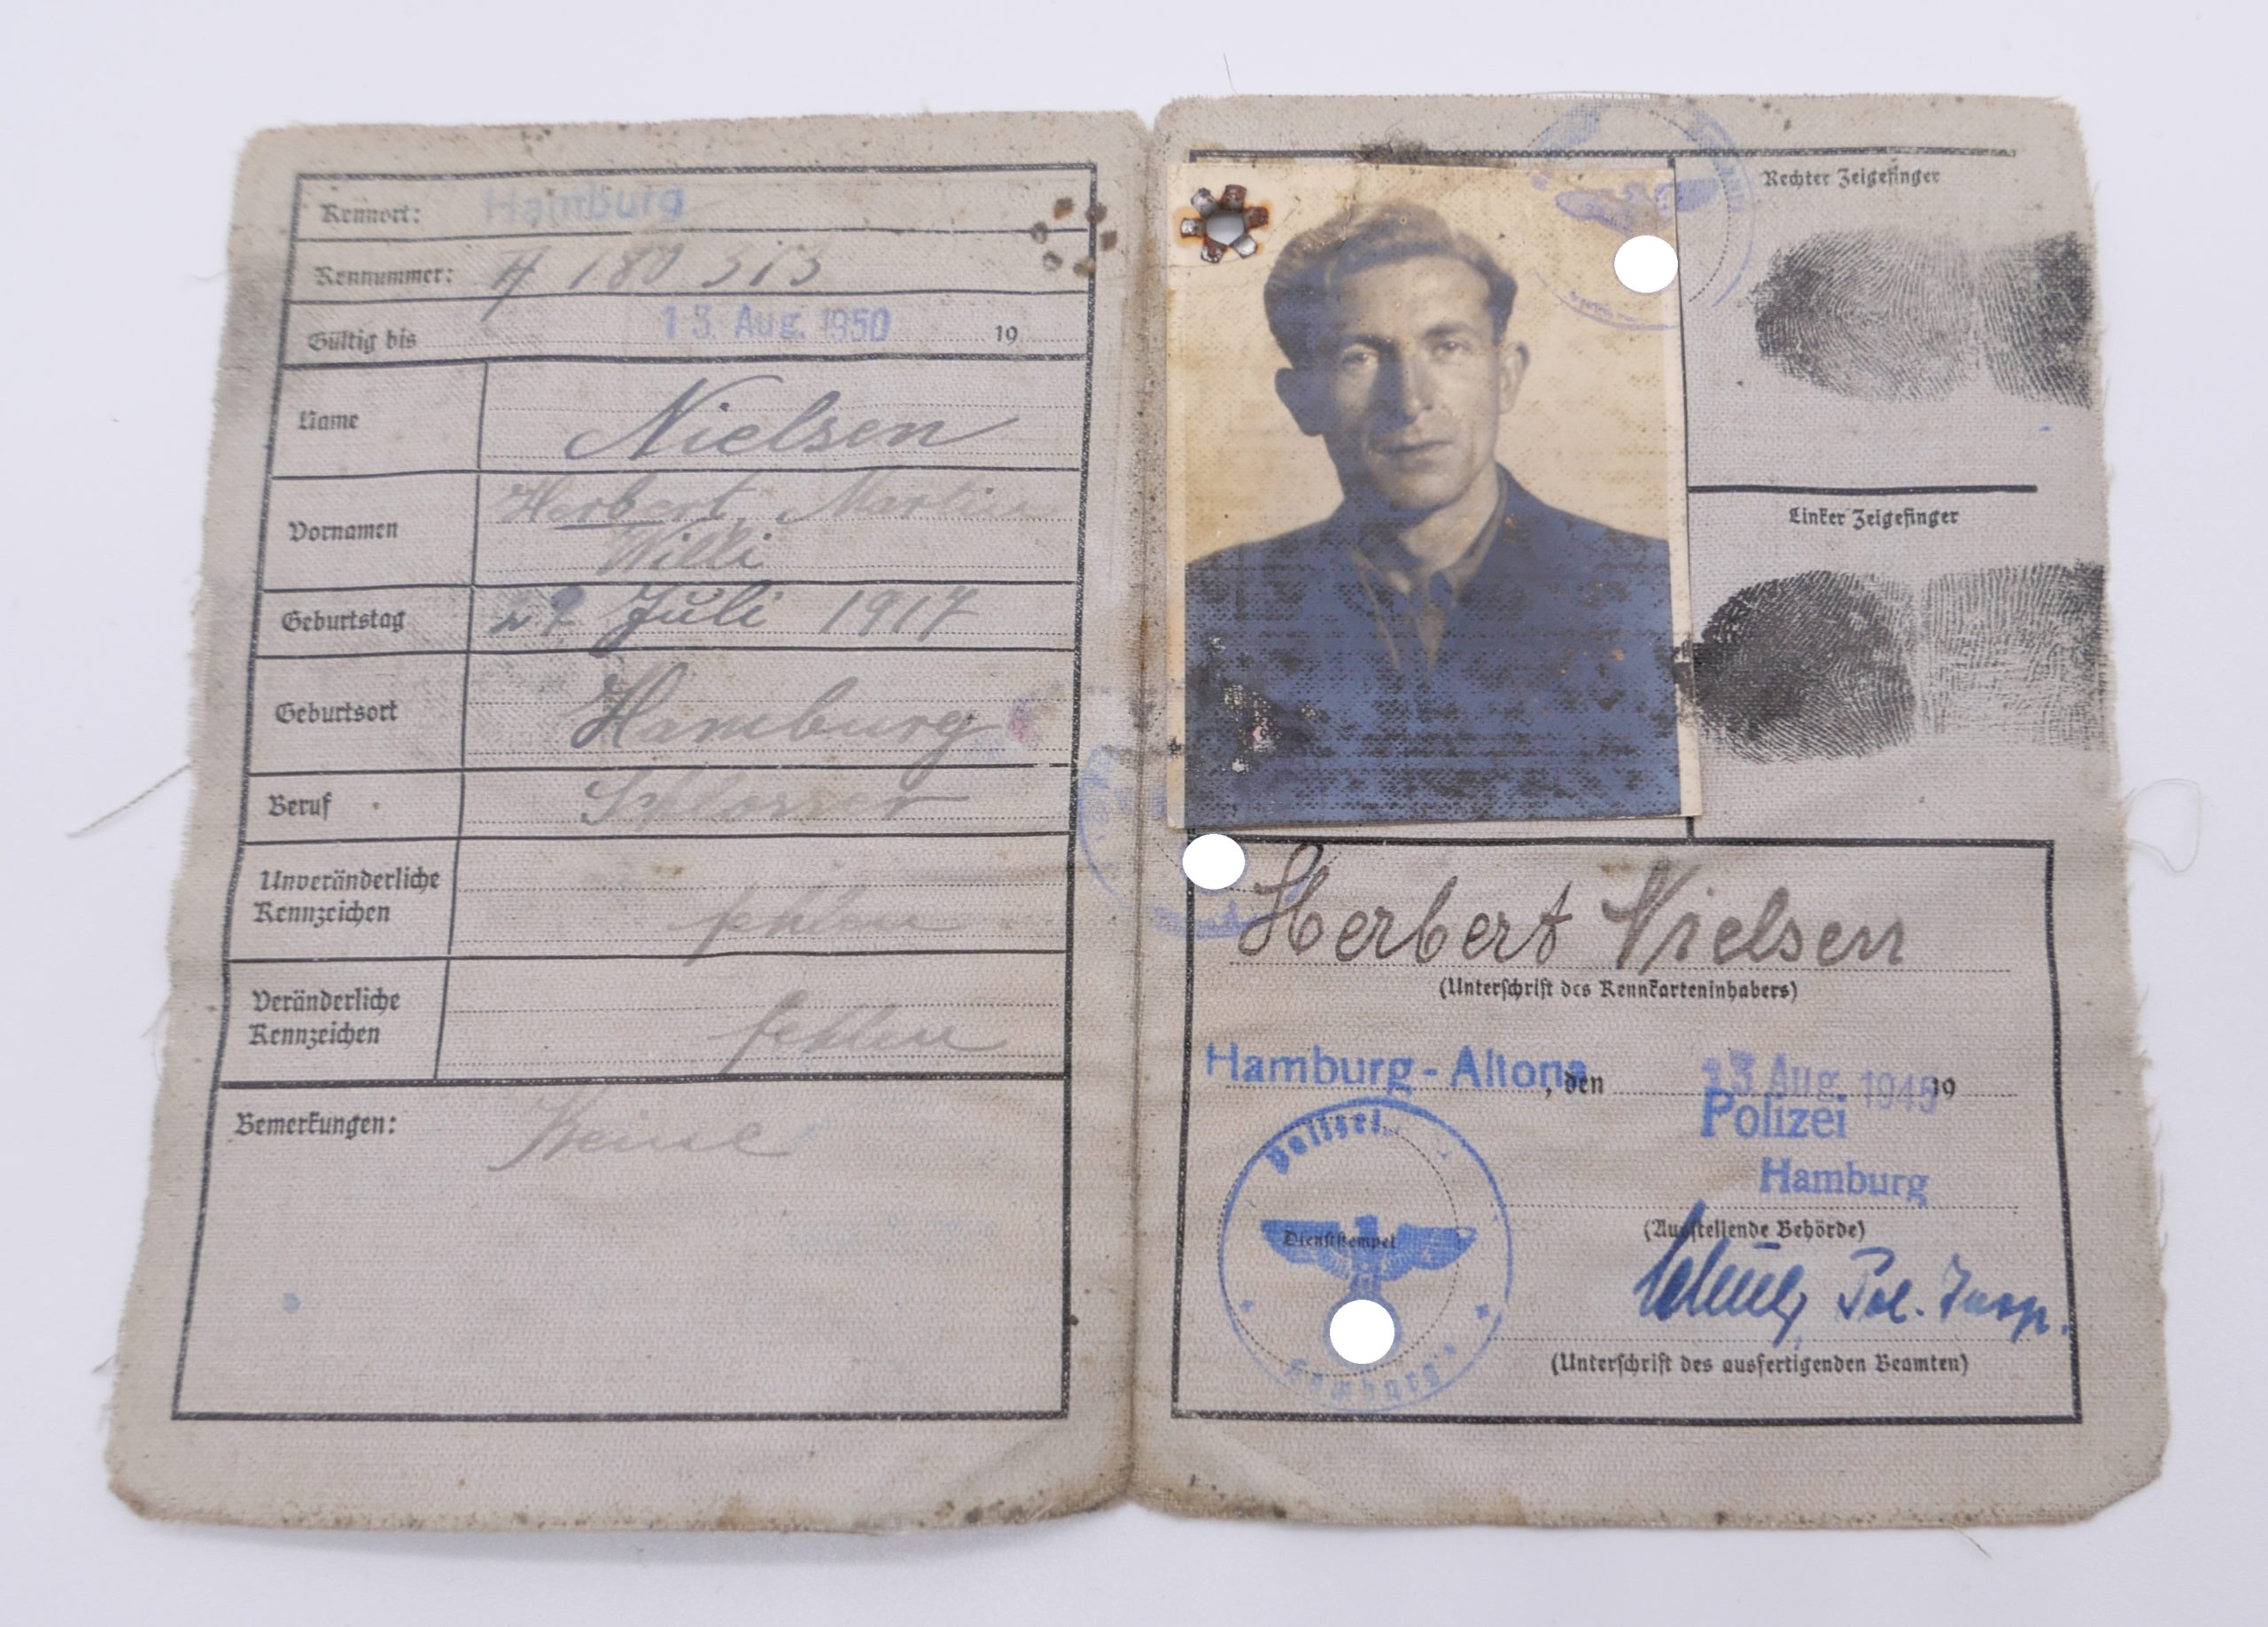 Kennort: Hamburg
Kennummer: A 180 313
Gültig bis 13. Aug. 1950 19
Name Nielsen
Vornamen Herbert Martin
Willi
Geburtstag 29. Juli 1917
Geburtsort Hamburg
Beruf Schlosser
Unveränderliche
Kennzeichen fehlen
Veränderliche
Kennzeichen fehlen
Bemerkungen: Keine
Rechter Zeigefinger
Linker Zeigefinger
Herbert Nielsen
(Unterschrift des Kennkarteninhabers)
Hamburg-Altona, den 13. Aug. 1945 19
Polizei
Hamburg
(Ausstellende Behörde)
Polizei
Dienststempel
Hamburg
Pol. Insp.
(Unterschrift des ausfertigenden Beamten)